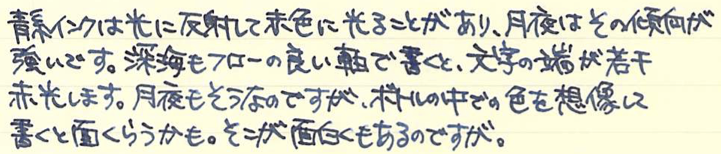 青系インクは光に反射して赤色に光ることがあり、月夜はその傾向が
強いです。深海もフローの良い軸で書くと、文字の端が若干
赤光します。月夜もそうなのですが、ボトルの中での色を想像して
書くと面くらうかも。そこが面白くもあるのですが。